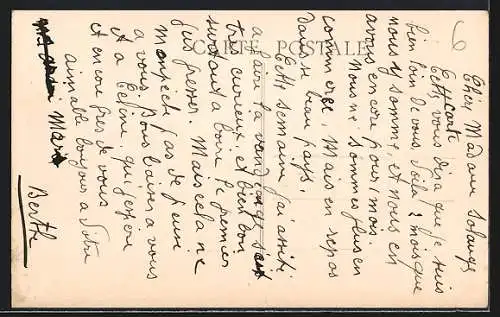 CARTE POSTALE
6
Chèr Madame Solange
Cett carte
vous dira que je suis
bien loin de vous. Voila 2 mois que
nous y somme, et nous en
avons encore pour 1 mois.
Nous ne sommes plus en
commerce Mais en repos
dans se beau pays.
Cette semaine j'ai asisté
a faire la vendange s'est
tres curieux, et bien bon
surtout a boire le premier
jus presser. Mais cela ne
m'empeche pas de penser
a vous. Bons baisers a vous
et a Céline, qui j'espere
et encore pres de vous
aimable bonjour a Votre
Mari
Berthe